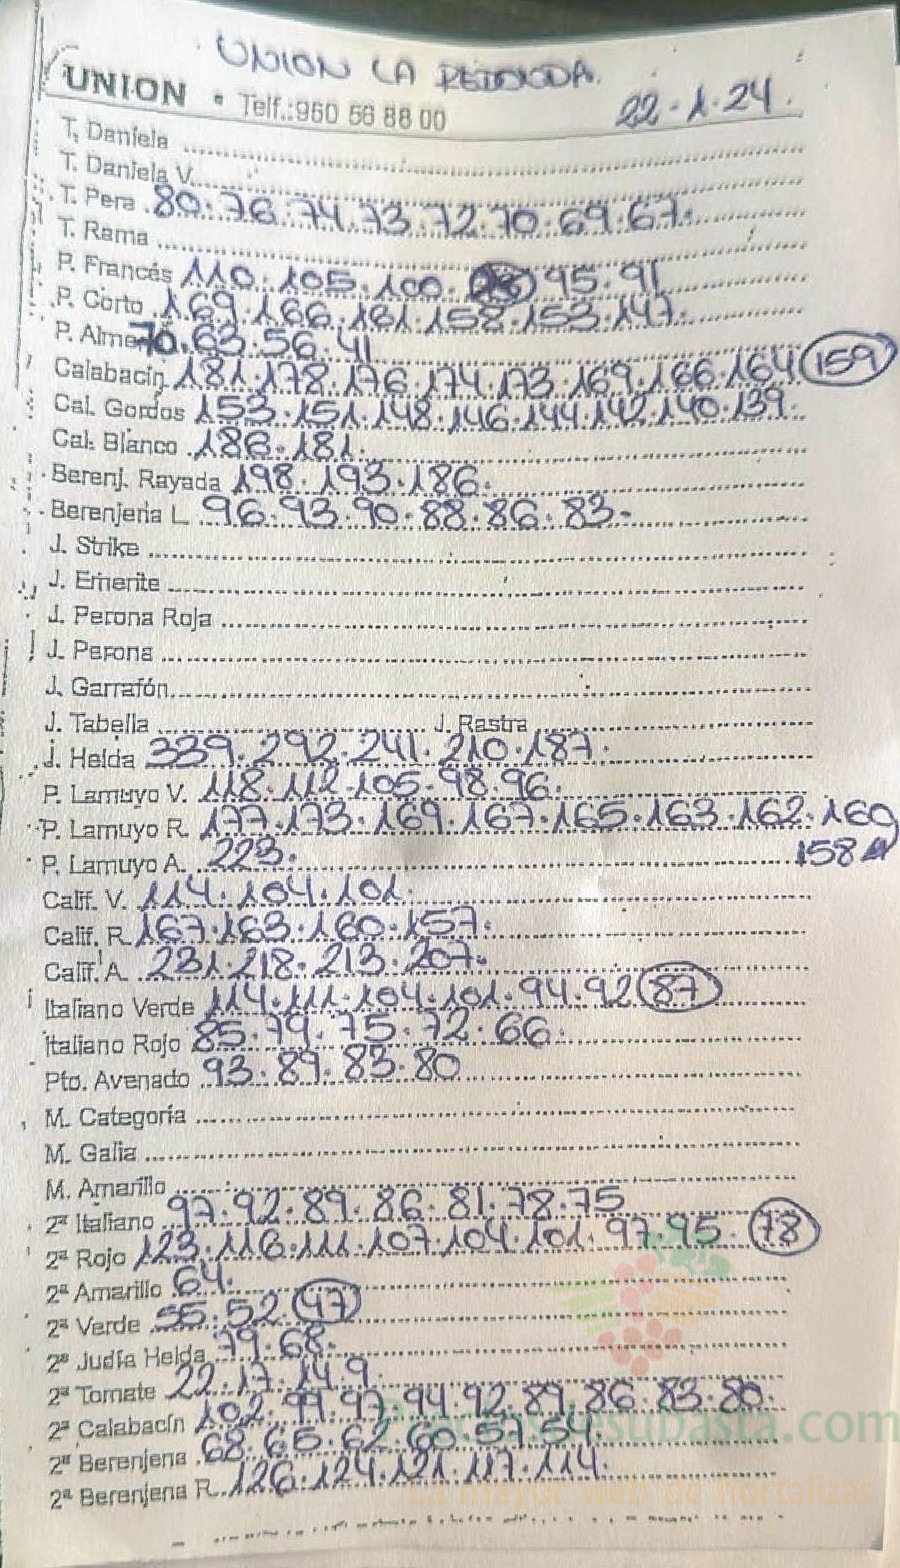 UNION LA REDONDA.
UNION • Telf.:950 56 88 00 22.1.24.
T. Daniela
T. Daniela V.
T. Pera 80.76.74.73.72.70.69.67.
T. Rama
P. Francés 110.105.100. 95.91
P. Corto 169.166.161.158.153.147.
P. Alme 70.63.56.41
Calabacín 181.178.176.174.173.169.166.164 159
Cal. Gordos 153.151.148.146.144.142.140.139.
Cal. Blanco 186.181.
Berenj. Rayada 198.193.186.
Berenjena L. 96.93.90.88.86.83.
J. Strike
J. Emerite
J. Perona Roja
J. Perona
J. Garrafón
J. Tabella J. Rastra
J. Helda 339.292.241.210.187.
P. Lamuyo V. 118.112.105.98.96.
P. Lamuyo R. 177.173.169.167.165.163.162.160
P. Lamuyo A. 223. 158
Calif. V. 114.104.101.
Calif. R. 167.163.160.157.
Calif. A. 231.218.213.207.
Italiano Verde 114.111.104.101.94.92 87
Italiano Rojo 85.79.75.72.66.
Pto. Avenado 93.89.83.80
M. Categoría
M. Galia
M. Amarillo
2ª Italiano 97.92.89.86.81.78.75
2ª Rojo 123.116.111.107.104.101.97.95. 78
2ª Amarillo 64.
2ª Verde 55.52 47
2ª Judía Helda 79.68.
2ª Tomate 22.17.14.9.
2ª Calabacín 102.99.97.94.92.89.86.83.80.
2ª Berenjena 68.65.62.60.57.54.
2ª Berenjena R. 126.124.121.117.114.
Preciosdesubasta.com
La mayor web de hortalizas